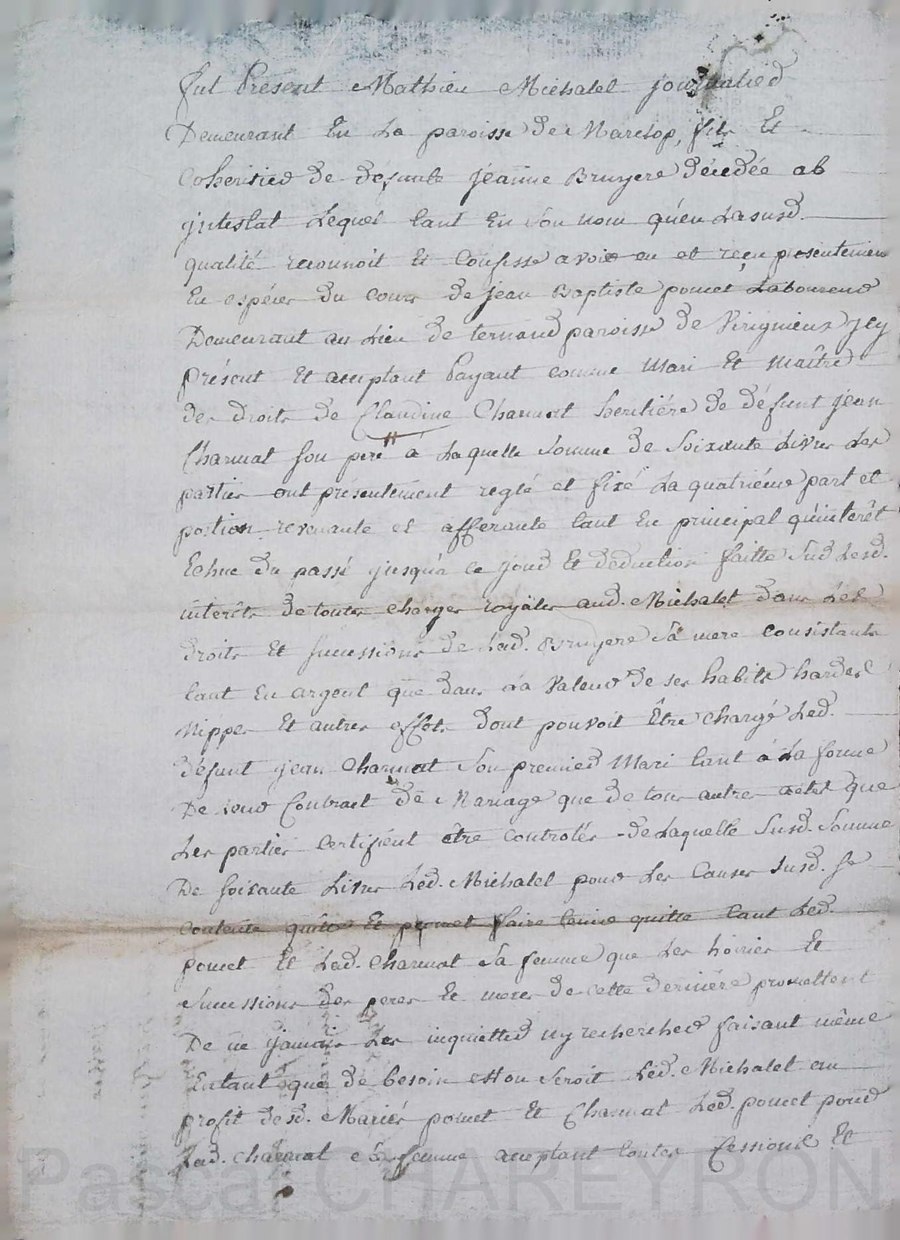 Fut Présent Mathieu Michalet journalier
Demeurant En La paroisse de Marclop, fils Et
Coheritier de défunte jeanne Bruyere décédée ab
jntestat Lequel tant En Son nom qu'en Lasusd.
qualité reconnoit Et Confesse avoir eu et reçu presentement
En espéces du cours de jean Baptiste poncet Laboureur
Demeurant au Lieu de ternand paroisse de Virignieux jcy
Présent Et acceptant Payant comme Mari Et Maître
des droits de Claudine Charmat heritiére de défunt jean
Charmat Son pere a Laquelle Somme de Soixante Livres Les
parties ont présentement reglé et fixé La quatriéme part et
portion revenante et afferante tant En principal qu'interêt
Echue du passé jusqu'a ce jour Et déduction faitte Sur Lesd.
interêts de toutes charges royales aud. Michalet dans Les
droits Et Successions de Lad. Bruyere Sa mere consistants
tant En argent que dans La Valeur de ses habits hardes
Nippes Et autres effets dont pouvoit Être chargé Led.
défunt jean Charmat Son premier Mari tant à La forme
De Contrat de Mariage que de tous autres actes que
Les parties certifient être controlés - de Laquelle Susd. Somme
De Soixante Livres Led. Michalet pour Les Causes Susd. Se
contente quitte Et promet faire tenir quitte tant Led.
poncet Et Lad. Charmat Sa femme que Les hoiries Et
Successions des peres Et meres de cette derniére promettant
De ne jamais Les inquietter ny rechercher faisant même
Entant que de besoin est ou Seroit Led. Michalet au
profit desd. Mariés poncet Et Charmat Led. poncet pour
Lad. Charmat Sa femme acceptant toutes Cessions Et
Pascal CHAREYRON